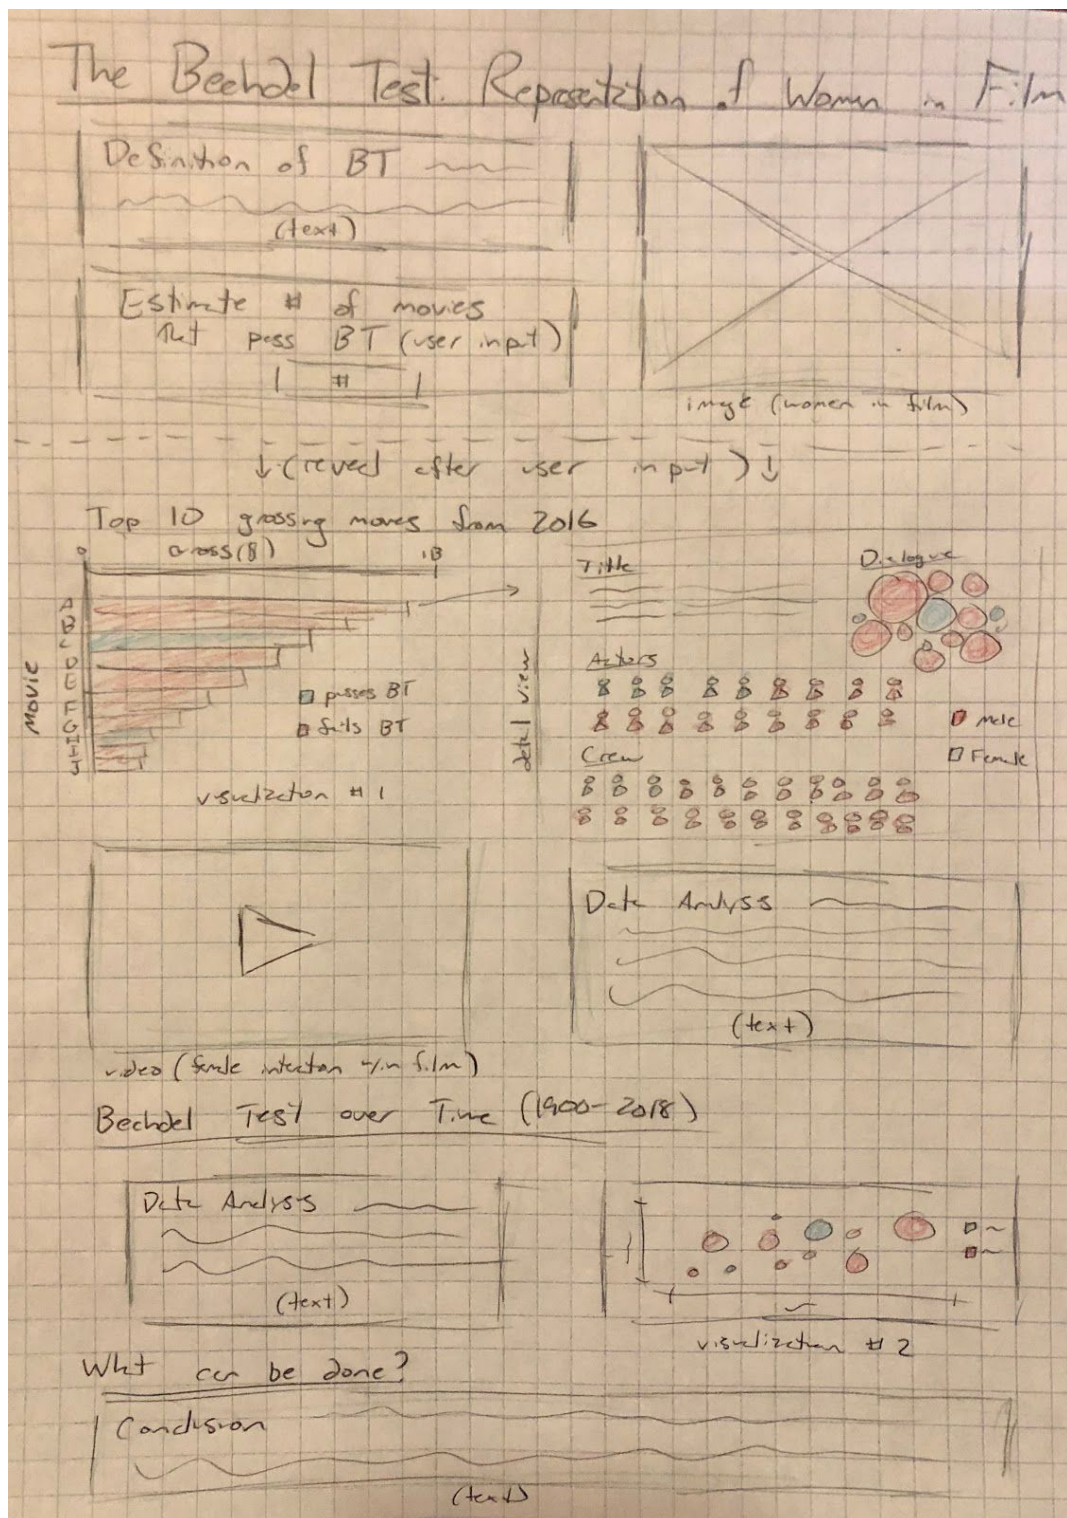 The Bechdel Test: Representation of Women in Film
Definition of BT
(text)
Estimate # of movies
that pass BT (user input)
#
image (women in film)
↓ (reveal after user input) ↓
Top 10 grossing movies from 2016
0
Gross($)
1B
Movie
A
B
C
D
E
F
G
H
I
J
passes BT
fails BT
visualization #1
detail view
Title
Dialogue
Actors
Male
Female
Crew
video (female interaction w/in film)
Data Analysis
(text)
Bechdel Test over Time (1900-2018)
Data Analysis
(text)
visualization #2
What can be done?
Conclusion
(text)